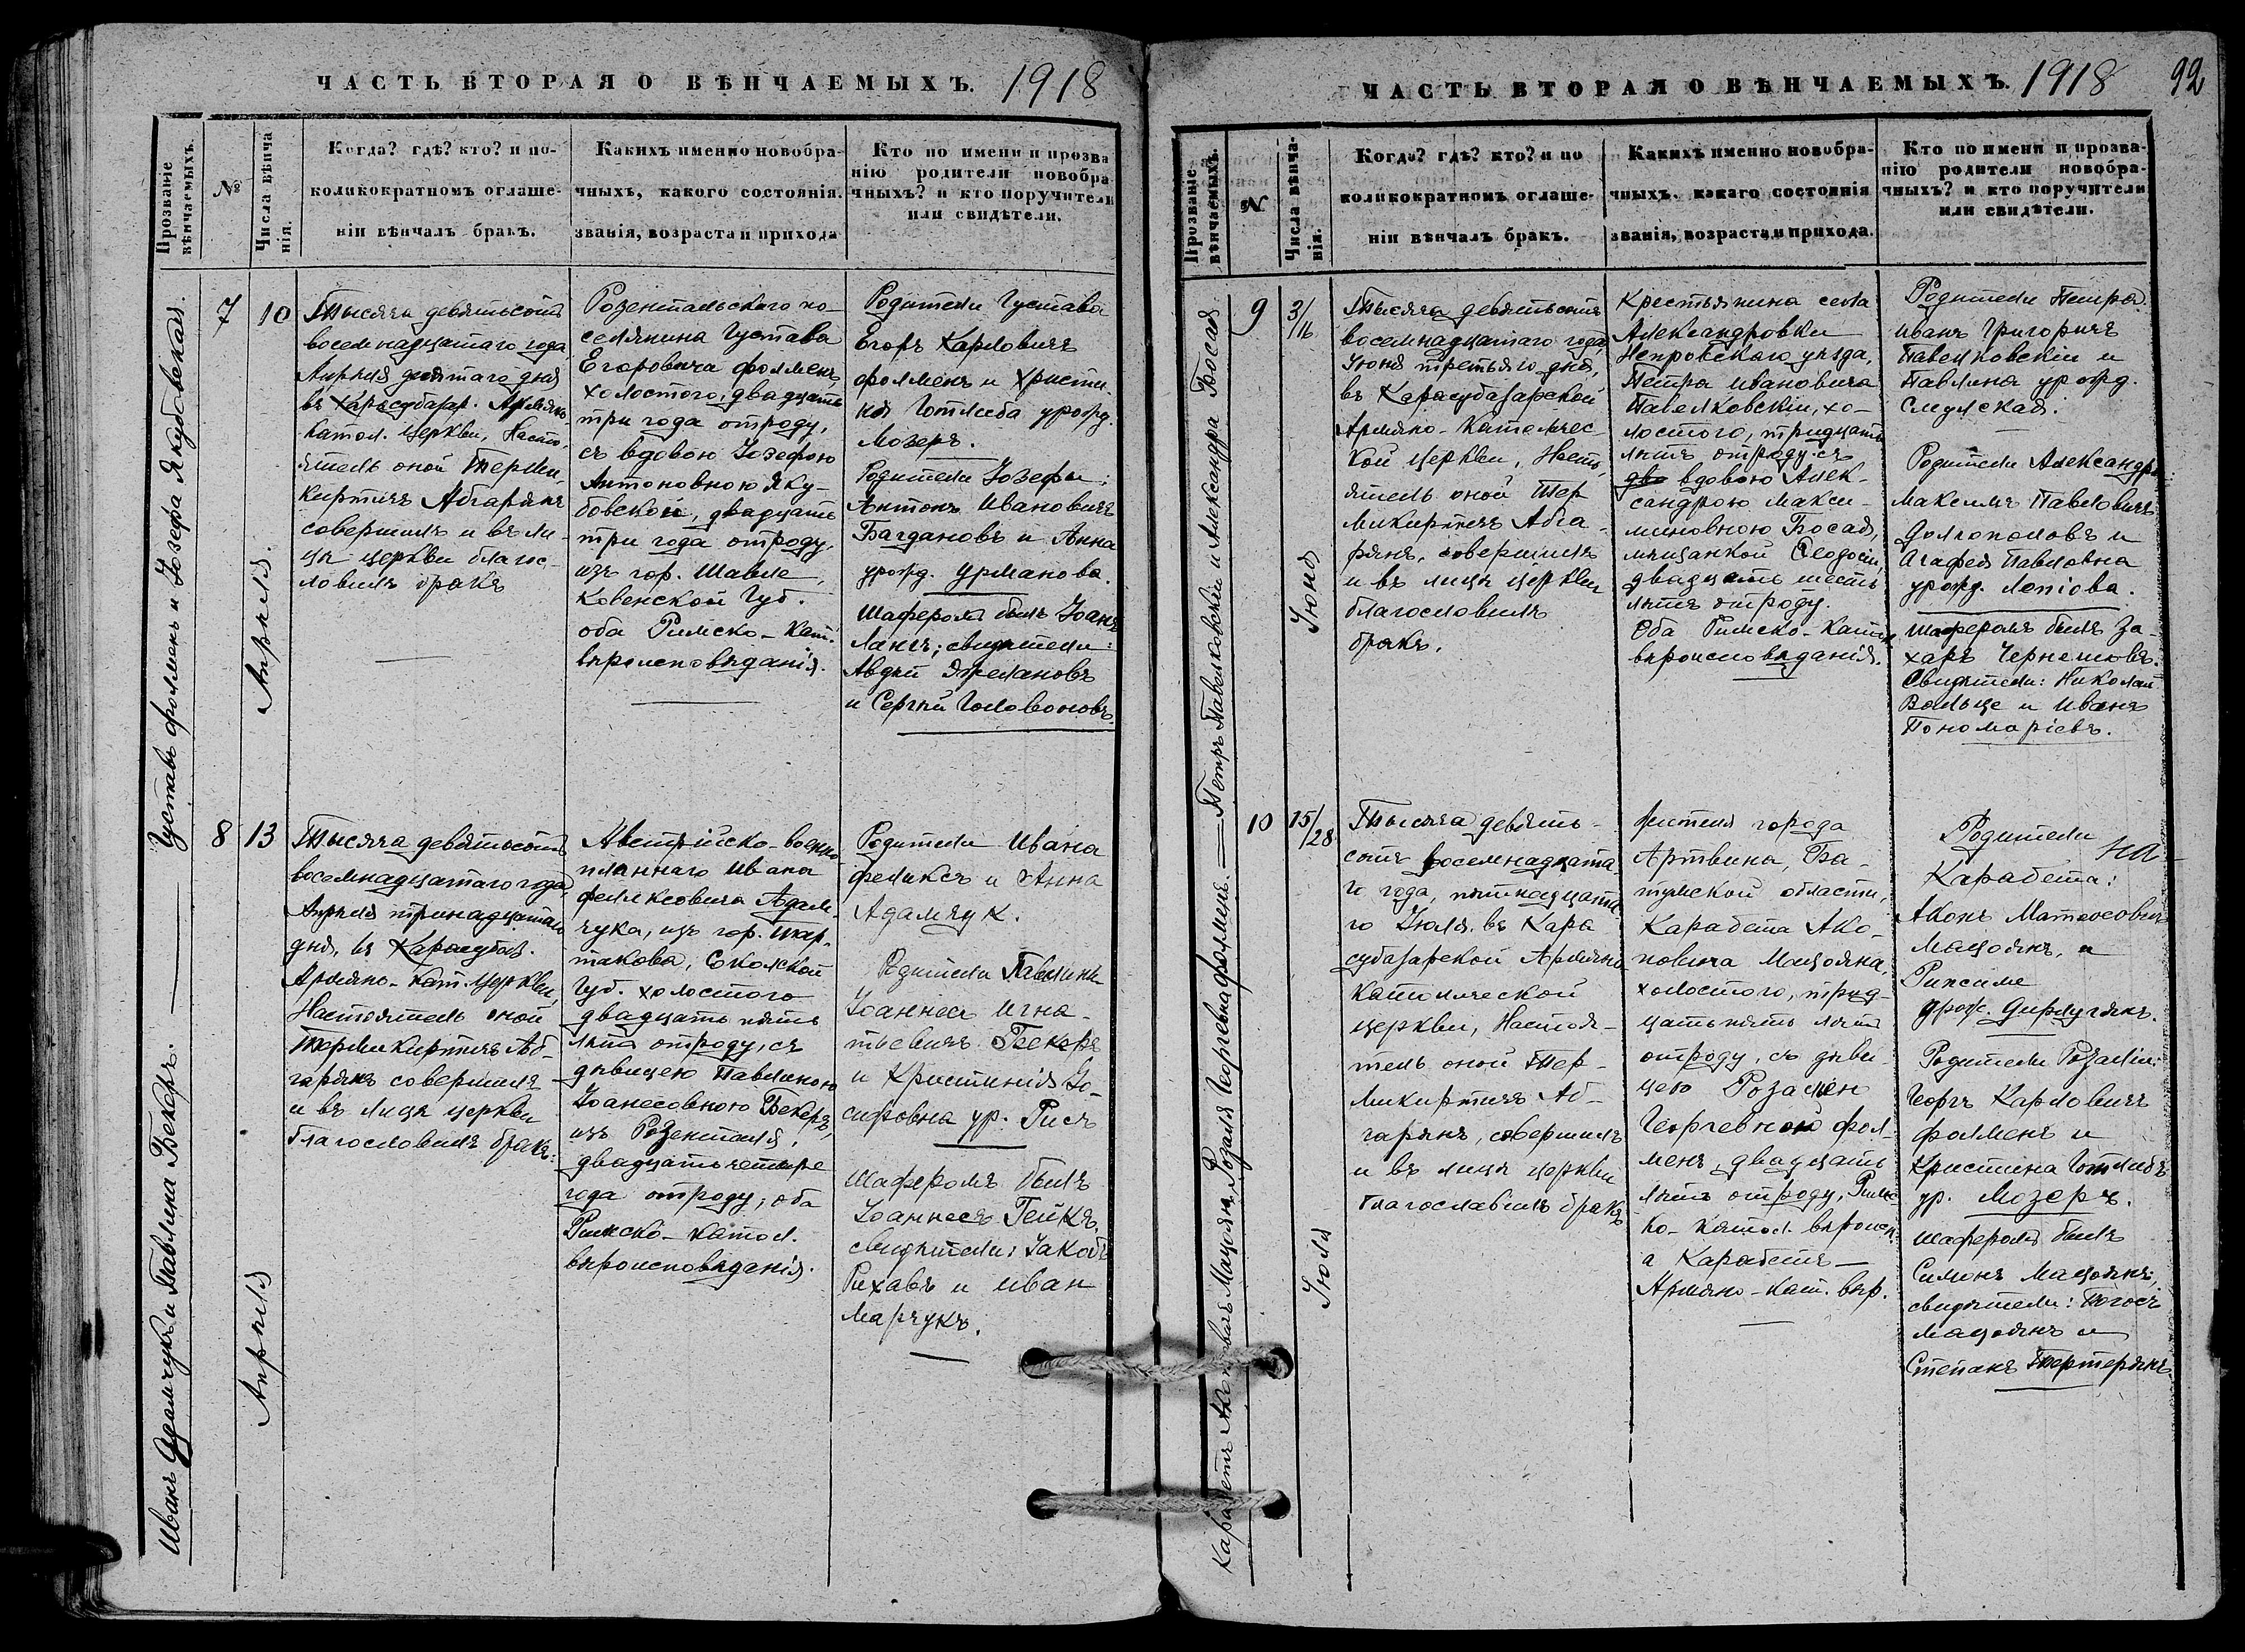 ЧАСТЬ ВТОРАЯ О ВѢНЧАЕМЫХЪ. 1918
Прозваніе вѣнчаемыхъ.
№
Числа вѣнчанія.
Когда? гдѣ? кто? и по-
коликократномъ оглаше-
ніи вѣнчалъ бракъ.
Какихъ именно новобра-
чныхъ, какого состоянія.
званія, возраста и прихода
Кто по имени и прозва
нію родители новобра
чныхъ? и кто поручители
или свидѣтели.
Густавъ Фолменъ и Іозефа Якубовская.
7
10
Апрѣля.
Тысяча девятьсотъ
восемнадцатаго года
Апрѣля десятаго дня
въ Карасубазар. Армяно
Катол. церкви, Насто,
ятель оной Терми,
киртичъ Абгарянъ
совершилъ и въ ли-
цѣ церкви благос-
ловилъ бракъ
Розентальскаго по-
селянина Густава
Егоровича Фолменъ,
холостого, двадцать
три года отроду,
съ вдовою Іозефою
Антоновною Яку-
бовской, двадцать
три года отроду,
изъ гор. Шавле,
Ковенской Губ.
оба Римско-Кат.
вѣроисповѣданія.
Родители Густава
Егоръ Карловичъ
Фолменъ и Христи
на Готлиба урожд.
Мозеръ.
Родители Іозефы:
Антонъ Ивановичъ
Багдановъ и Анна
урожд. Урманова.
Шаферомъ былъ Іоанъ
Лангъ; свидѣтели:
Авдѣй Дремановъ
и Сергѣй Головоновъ.
Иванъ Адамчукъ и Павлина Бекеръ.
8
13
Апрѣля
Тысяча девятьсотъ
восемнадцатаго года,
Апрѣля тринадцатаго
дня, въ Карасубаз.
Армяно-Кат. церкви,
Настоятель оной
Термикиртичъ Аб-
гарянъ совершилъ
и въ лицѣ церкви
благословилъ бракъ:
Австрійско-военно
плѣннаго Ивана
Феликсовича Адам-
чука, изъ гор.
такова, Сокольской
Губ. холостого
двадцать пять
лѣтъ отроду, съ
дѣвицею Павлиною
Іоанесовною Бекеръ,
изъ Розенталя,
двадцать четыре
года отроду, оба
Римско-катол.
вѣроисповѣданія.
Родители Ивана
Феликсъ и Анна
Адамчук.
Родители Павлины
Іоаннесъ Игна-
тьевичъ Бекеръ
и Кристинія Іо-
сифовна ур. Рисъ
Шаферомъ былъ
Іоаннесъ Гейкъ,
свидѣтели: Іакобъ
Рихавъ и Иван
Марчукъ.
ЧАСТЬ ВТОРАЯ О ВѢНЧАЕМЫХЪ. 1918
92
Прозваніе вѣнчаемыхъ.
№
Числа вѣнчанія.
Когда? гдѣ? кто? и по
коликократномъ оглаше-
ніи вѣнчалъ бракъ.
Какихъ именно новобра-
чныхъ, какаго состоянія
званія, возраста и прихода.
Кто по имени и прозва-
нію родители новобра-
чныхъ? и кто поручители
или свидѣтели.
Петръ Павелковскій и Александра Босая.
9
3/16
Іюня
Тысяча девятьсотъ
восемнадцатаго года,
Іюня третьяго дня,
въ Карасубазарской
Армяно-Католичес-
кой церкви, Насто,
ятель оной Тер
Микиртичъ Абга-
рянъ, совершилъ
и въ лицѣ церкви
благословилъ
бракъ.
Крестьянина села
Александровки
Непровского уѣзда,
Петра Ивановича
Павелковскій, хо-
лостого, тридцать
лѣтъ отроду съ
вдовою Алек-
сандрою Макси-
миновною Босая,
мѣщанкой Феодосіи,
двадцать шесть
лѣтъ отроду.
Оба Римско-Катол
вѣроисповѣданія.
Родители Петра
Иванъ Григоричъ
Павелковскіи и
Павлина урожд.
Смулская.
Родители Александры
Максимъ Павловичъ
Долгополовъ и
Агафея Павловна
урожд. Лопіова.
Шаферомъ былъ За-
харъ Чернешовъ.
Свидѣтели: Николай
Вольце и Иванъ
Пономаріевъ.
Карабетъ Акоповичъ Мацоянъ и Розалія Георгіевна Фолменъ.
10
15/28
Іюля
Тысяча девять-
сотъ восемнадцата-
го года, пятнадцата-
го Іюля, въ Кара
субазарской Армяно
Католической
церкви, Настоя-
тель оной Тер-
Микиртичъ Аб-
гарянъ, совершилъ
и въ лицѣ церкви
благославилъ бракъ
Жителя города
Артвина, Ба-
тумской области,
Карабета Ако-
повича Мацояна,
холостого, трид-
цать пять лѣтъ
отроду, съ дѣви-
цею Розаліею
Георгіевной Фол-
менъ, двадцать
лѣтъ отроду, Римс-
ко-катол. вѣроисп.
а Карабетъ-
Армяно-кат. вѣр.
Родители
Карабета:
Акопъ Матеосовичъ
Мацоянъ, и
Рипсиме
урож. Дирлугянъ.
Родители Розаліи:
Георгъ Карловичъ
Фолменъ и
Кристина Готлибъ
ур. Мозеръ.
Шаферомъ былъ
Симонъ Мацоянъ;
свидѣтели: Погосъ
Мацоянъ и
Степанъ Тертерянъ.